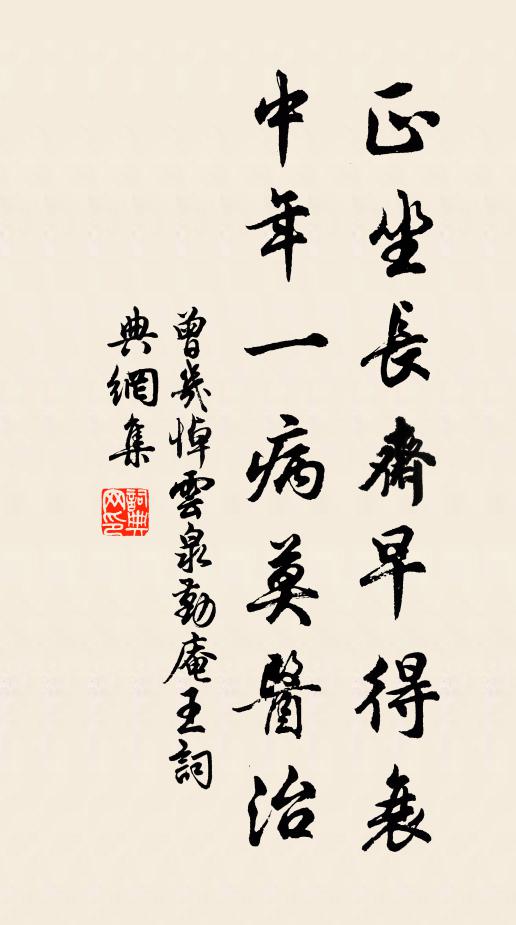 正坐長齋早得衰
中年一病莫醫治
曾幾悼雲泉勤庵王詞
典網集
詞典網印